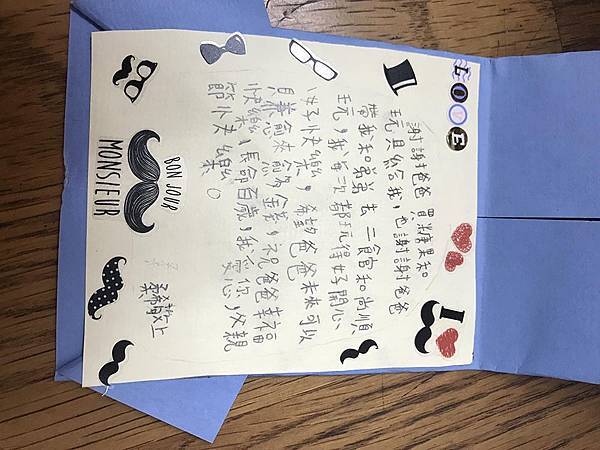 LOVE
謝謝爸爸 買糖果和
玩具給我，也謝謝爸爸
帶我和弟弟去二館和尚順
玩，我每次都玩得好開心
、好快樂，希望爸爸未來可以
愈來愈多金錢，祝爸爸幸福
快樂，長命百歲，我愛你，父親
節快樂。
桑希敬上
I
BON JOUR
MONSIEUR